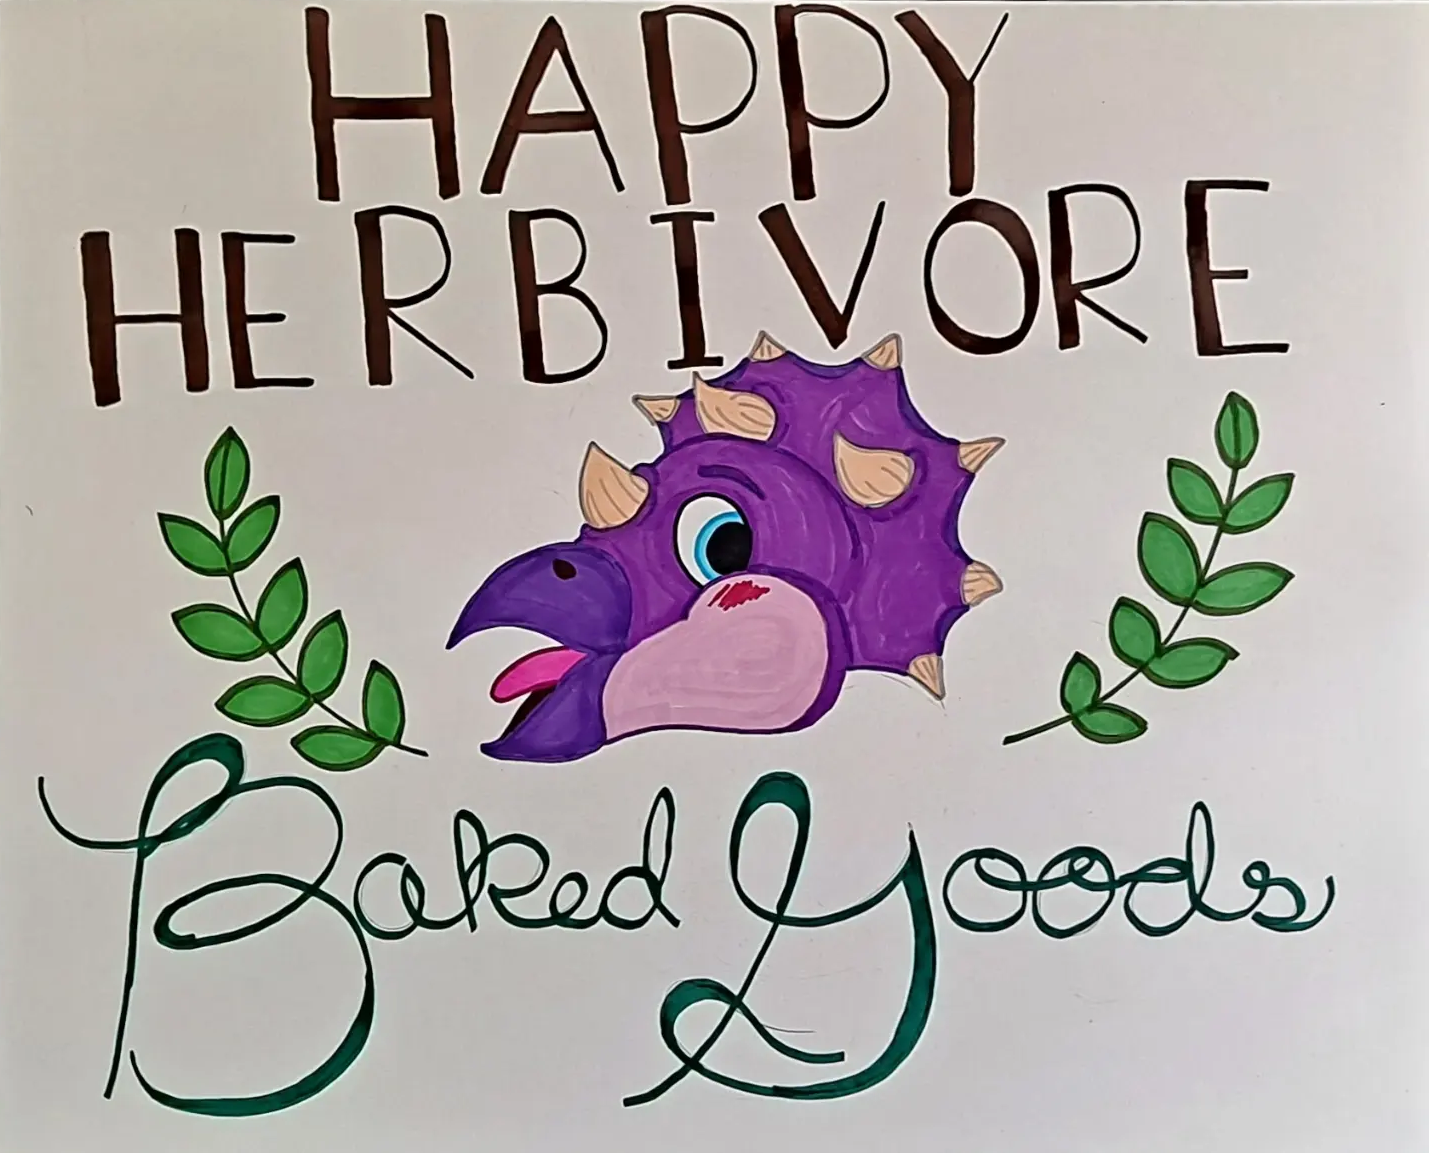 HAPPY
HERBIVORE
Baked Goods